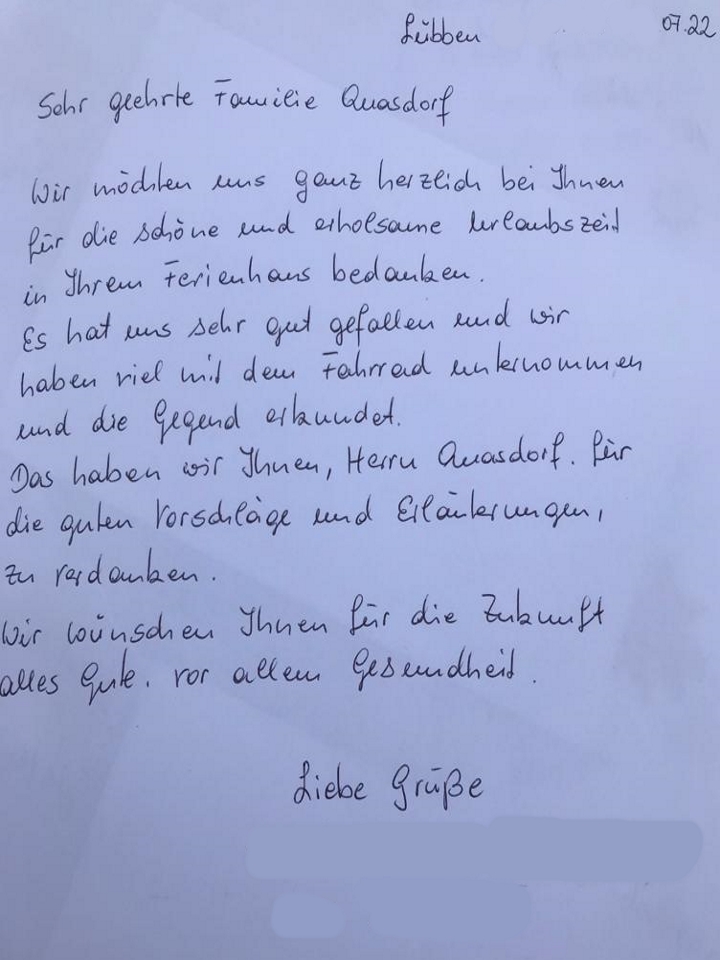 Lübben 07.22
Sehr geehrte Familie Quasdorf
Wir möchten uns ganz herzlich bei Ihnen
für die schöne und erholsame Urlaubszeit
in Ihrem Ferienhaus bedanken.
Es hat uns sehr gut gefallen und wir
haben viel mit dem Fahrrad unternommen
und die Gegend erkundet.
Das haben wir Ihnen, Herrn Quasdorf. für
die guten Vorschläge und Erläuterungen,
zu verdanken.
Wir wünschen Ihnen für die Zukunft
alles Gute. vor allem Gesundheit.
Liebe Grüße